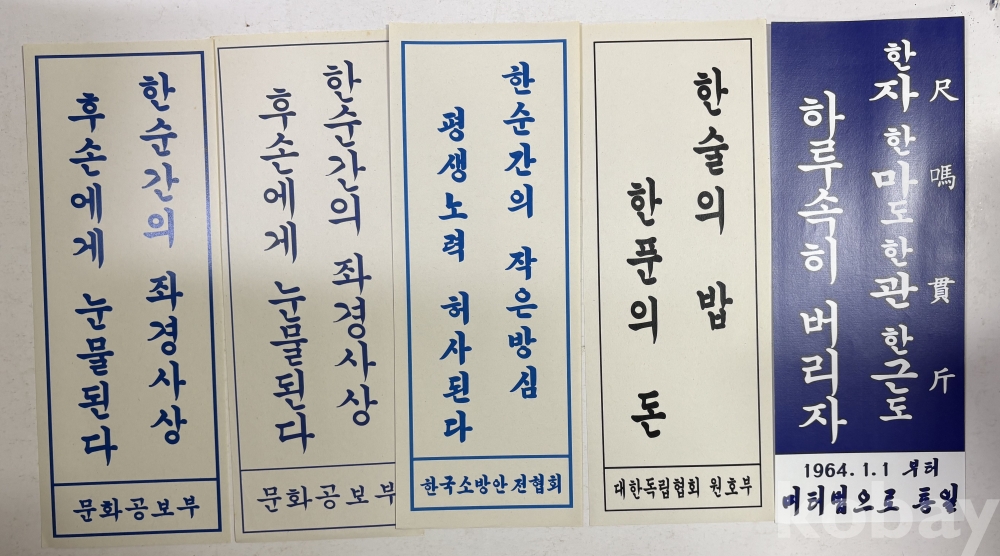 한순간의 좌경사상
후손에게 눈물된다
문화공보부
한순간의 좌경사상
후손에게 눈물된다
문화공보부
한순간의 작은방심
평생노력 허사된다
한국소방안전협회
한술의 밥
한푼의 돈
대한독립협회 원호부
尺 嗎 貫 斤
한자 한마도 한관 한근도
하루속히 버리자
1964. 1. 1 부터
미터법으로 통일
Kobay